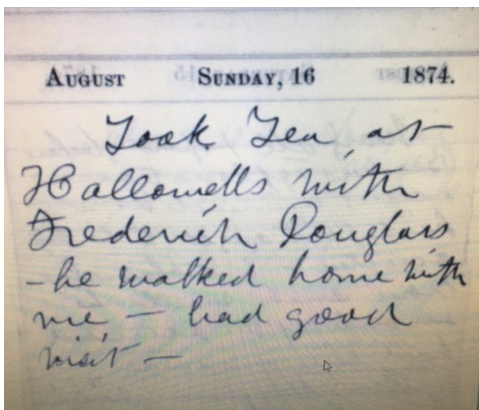 AUGUST SUNDAY, 16 1874.
Took Tea at
Hallowells with
Frederick Douglass
- he walked home with
me - had good
visit -